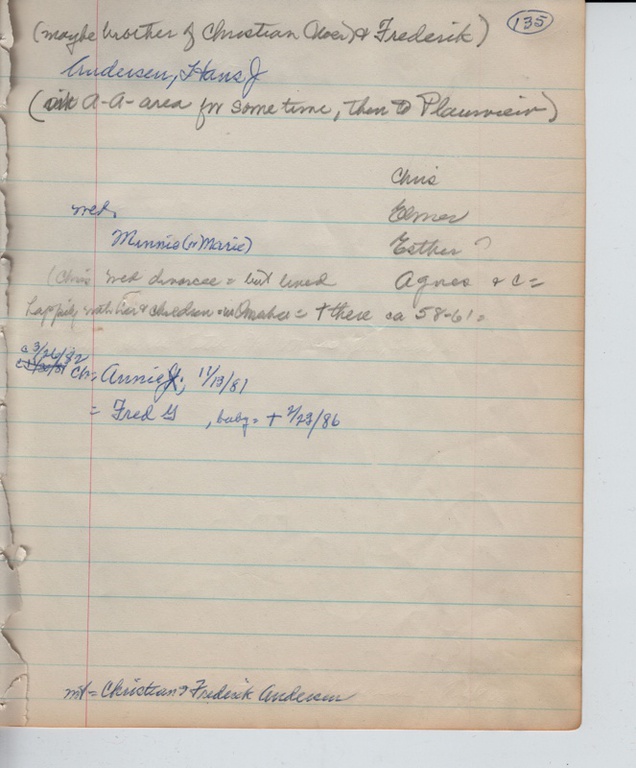 135
(maybe brother of Christian (Noer) & Frederik)
Andersen, Hans J
(A-A-area for some time, then to Plainview)
Chris
wed.
Elmer
Minnie (or Marie)
Esther ?
(Chris wed divorcee = but lived Agnes & c =
happily with her & children in Omaha = † there ca 58-61 =
c 3/26/82
ch = Annie J; 11/13/81
= Fred G , baby = † 2/23/86
Christian & Frederik Andersen